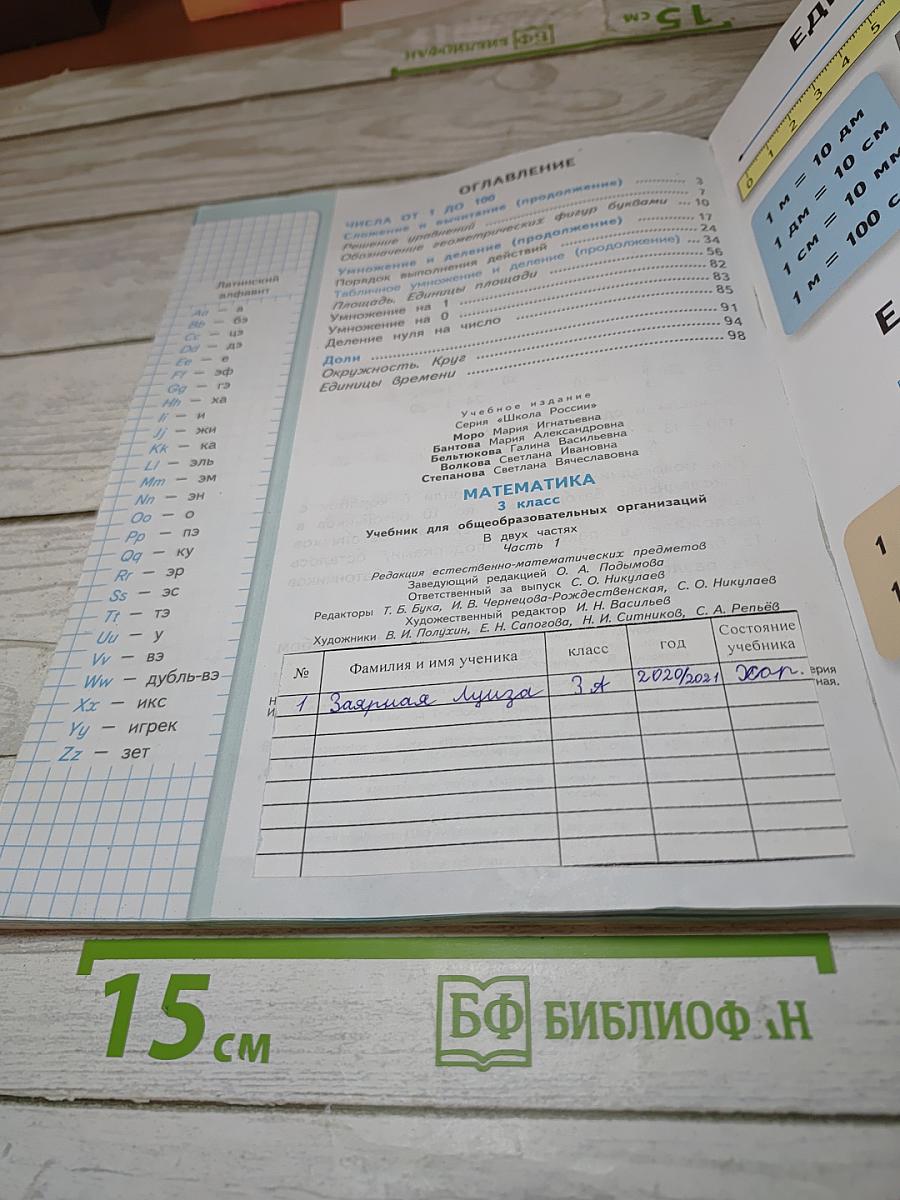 15 см
БФ БИБЛИОФАН
ОГЛАВЛЕНИЕ
ЧИСЛА ОТ 1 ДО 100
Сложение и вычитание (продолжение) 3
Решение уравнений 7
Обозначение геометрических фигур буквами 10
Умножение и деление (продолжение) 17
Порядок выполнения действий 24
Табличное умножение и деление (продолжение) 34
Площадь. Единицы площади 56
Умножение на 1 82
Умножение на 0 83
Деление нуля на число 85
Доли 91
Окружность. Круг 94
Единицы времени 98
Латинский
алфавит
Aa — а
Bb — бэ
Cc — цэ
Dd — дэ
Ee — е
Ff — эф
Gg — гэ
Hh — ха
Ii — и
Jj — жи
Kk — ка
Ll — эль
Mm — эм
Nn — эн
Oo — о
Pp — пэ
Qq — ку
Rr — эр
Ss — эс
Tt — тэ
Uu — у
Vv — вэ
Ww — дубль-вэ
Xx — икс
Yy — игрек
Zz — зет
Учебное издание
Серия «Школа России»
Моро Мария Игнатьевна
Бантова Мария Александровна
Бельтюкова Галина Васильевна
Волкова Светлана Ивановна
Степанова Светлана Вячеславовна
МАТЕМАТИКА
3 класс
Учебник для общеобразовательных организаций
В двух частях
Часть 1
Редакция естественно-математических предметов
Заведующий редакцией О. А. Подымова
Ответственный за выпуск С. О. Никулаев
Редакторы Т. Б. Бука, И. В. Чернецова-Рождественская, С. О. Никулаев
Художественный редактор И. Н. Васильев
Художники В. И. Полухин, Е. Н. Сапогова, Н. И. Ситников, С. А. Репьёв
№ Фамилия и имя ученика класс год Состояние учебника
1 Заярная Луиза 3 А 2020/2021 Хор.
ерия
ная.
Н
И
ЕДИ
0 1 2 3 4 5
1 м = 10 дм
1 дм = 10 см
1 см = 10 мм
1 м = 100 с
Е
1
1
15 см
БФ БИБЛИОФ АН